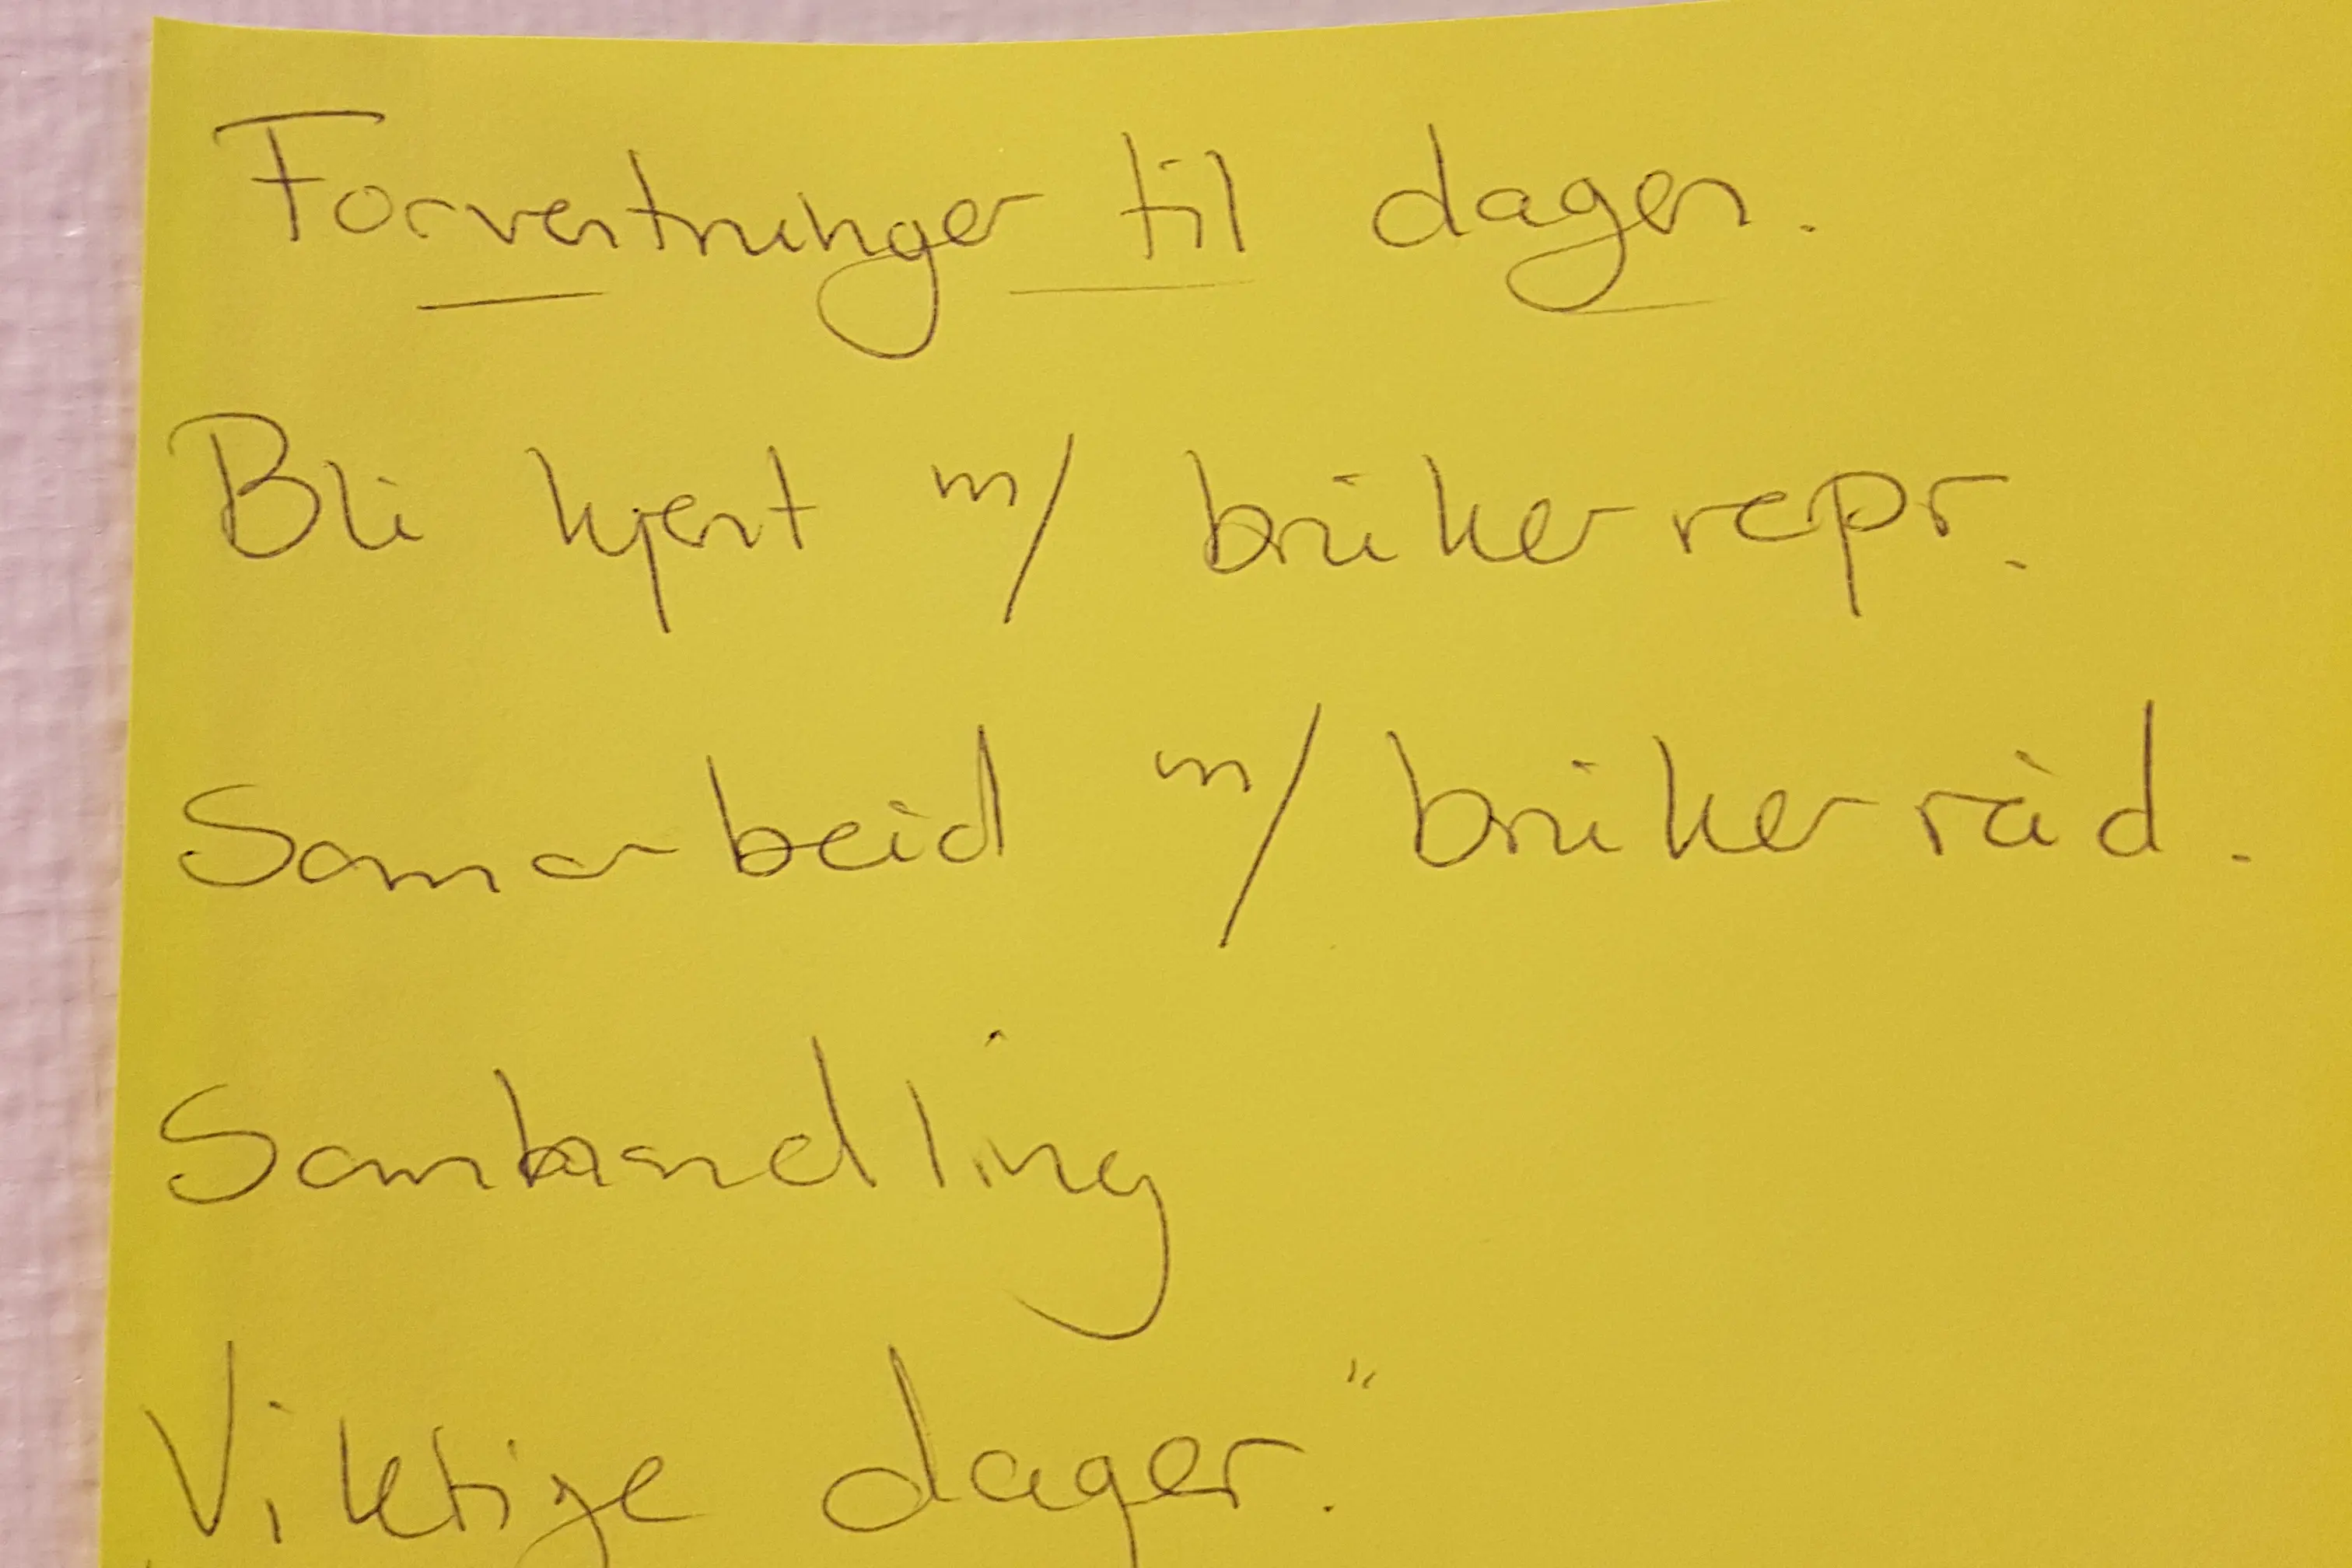 Forventninger til dagen.
Bli kjent m/ brukerrepr.
Samarbeid m/ brukerråd.
Samhandling
Viktige dager."